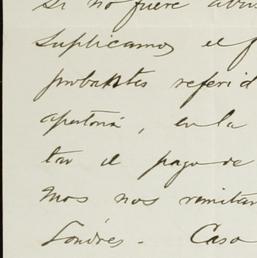 si no fuere abu
suplicamos el f
probantes referid
aportoná, en la
tar el pago de
mos nos remitan
Londres. Caso